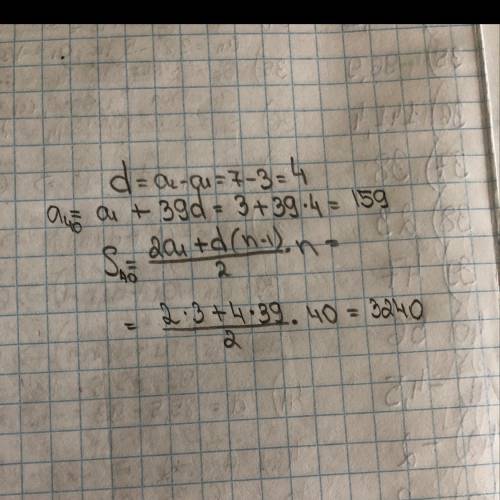 d = a₂ - a₁ = 7 - 3 = 4
a₄₀ = a₁ + 39d = 3 + 39·4 = 159
S₄₀ = (2a₁ + d(n-1))/2 · n =
= (2·3 + 4·39)/2 · 40 = 3240